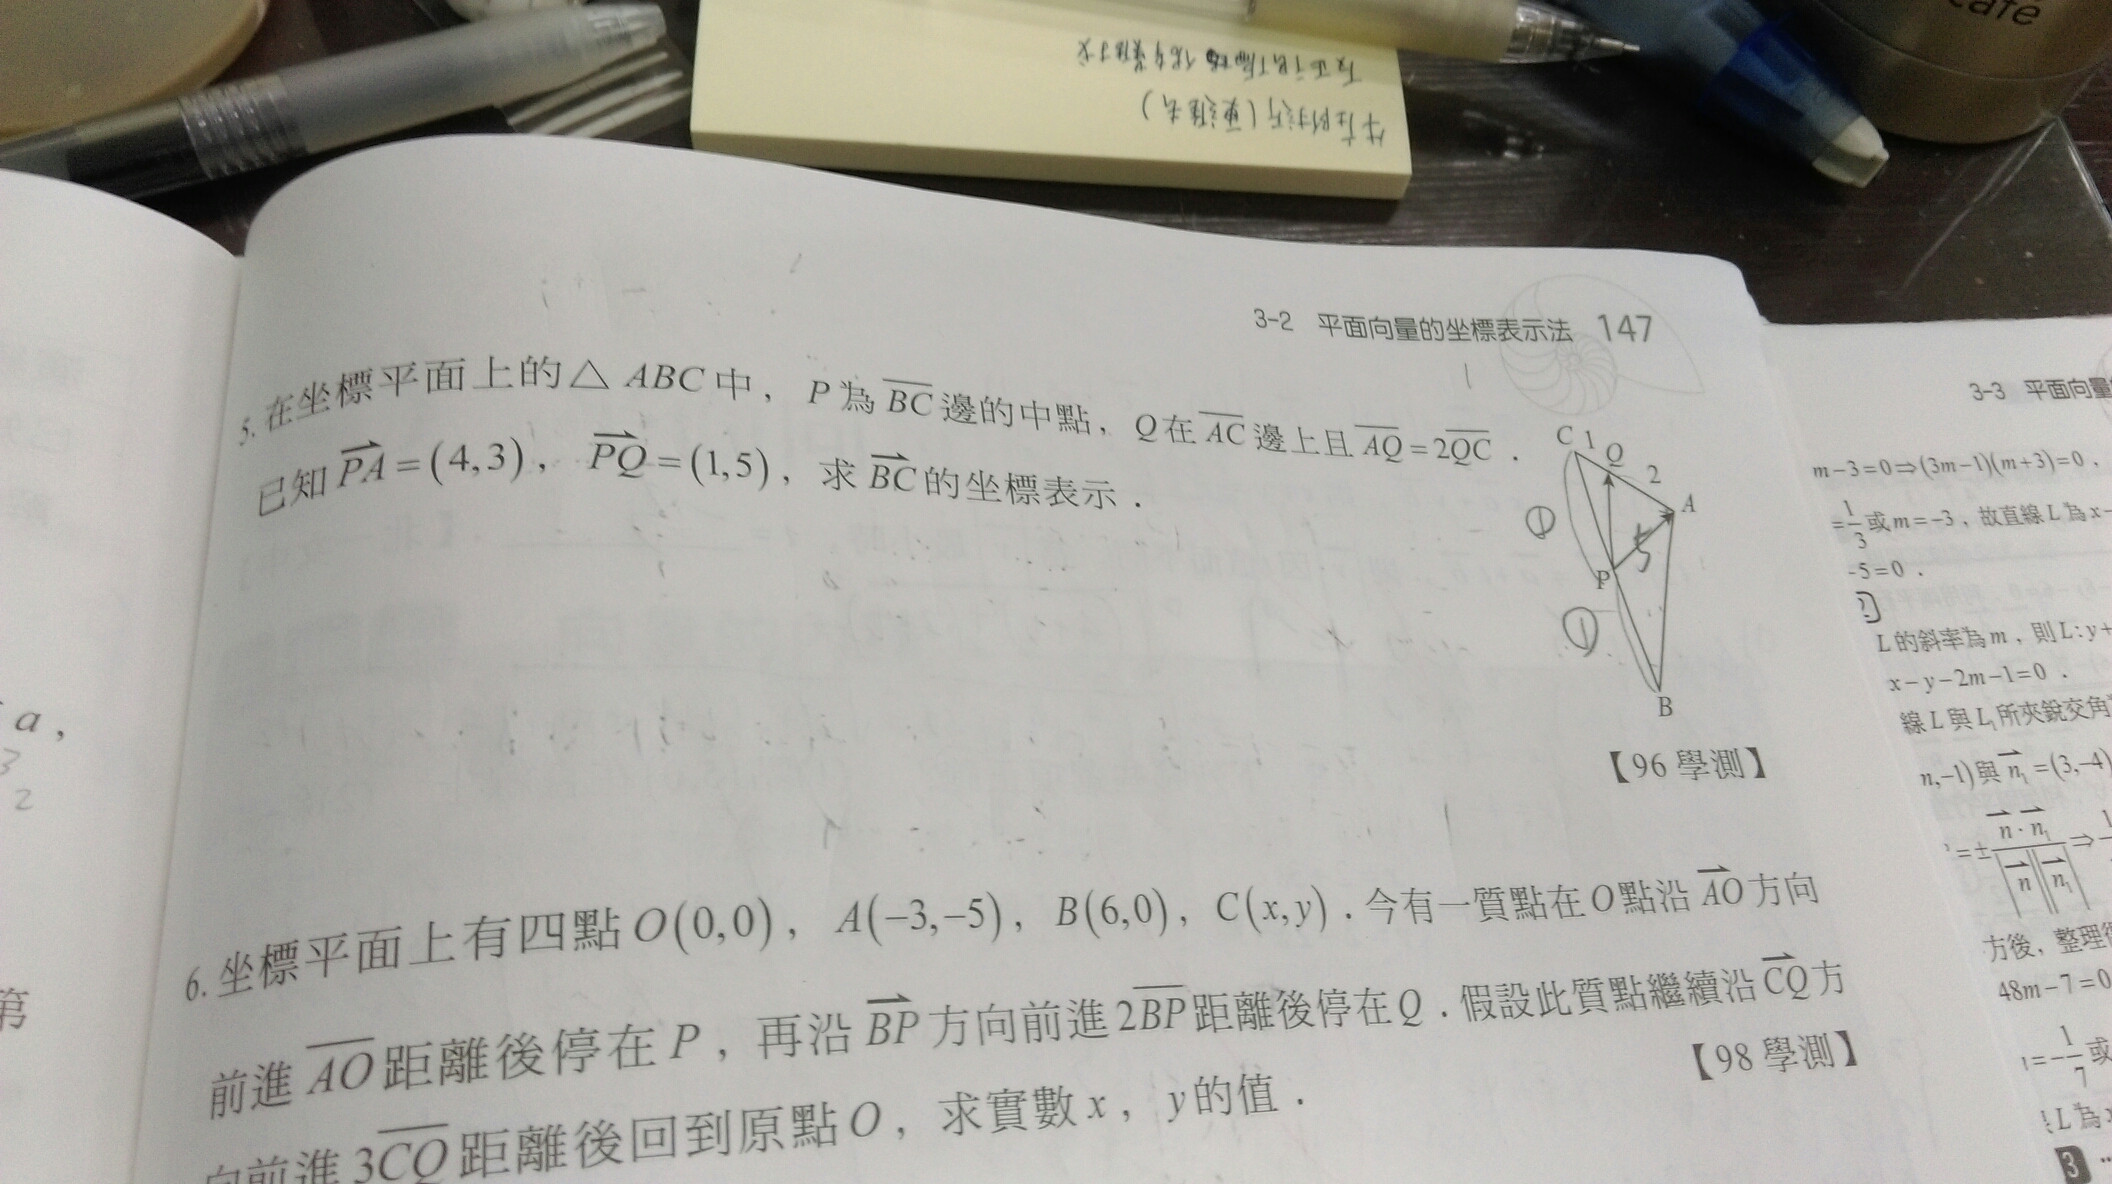 café
3-2 平面向量的坐標表示法 147
5. 在坐標平面上的△ ABC中，P為BC邊的中點，Q在AC邊上且AQ=2QC．
已知PA=(4,3)，PQ=(1,5)，求BC的坐標表示．
C 1 Q
2
A
①
5
P
①
B
【96學測】
6. 坐標平面上有四點O(0,0)，A(−3,−5)，B(6,0)，C(x,y)．今有一質點在O點沿AO方向
前進AO距離後停在P，再沿BP方向前進2BP距離後停在Q．假設此質點繼續沿CQ方
向前進3CQ距離後回到原點O，求實數x，y的值．
【98學測】
a，
3
2
第
3-3 平面向量
m−3=0⇒(3m−1)(m+3)=0，
=1/3或m=−3，故直線L為x−
-5=0．
L的斜率為m，則L:y+
x−y−2m−1=0．
線L與L₁所夾銳交角
n,−1)與n₁=(3,−4)
=± n·n₁/|n||n₁| ⇒
方後，整理
48m−7=0
=−1/7或
L為x
3